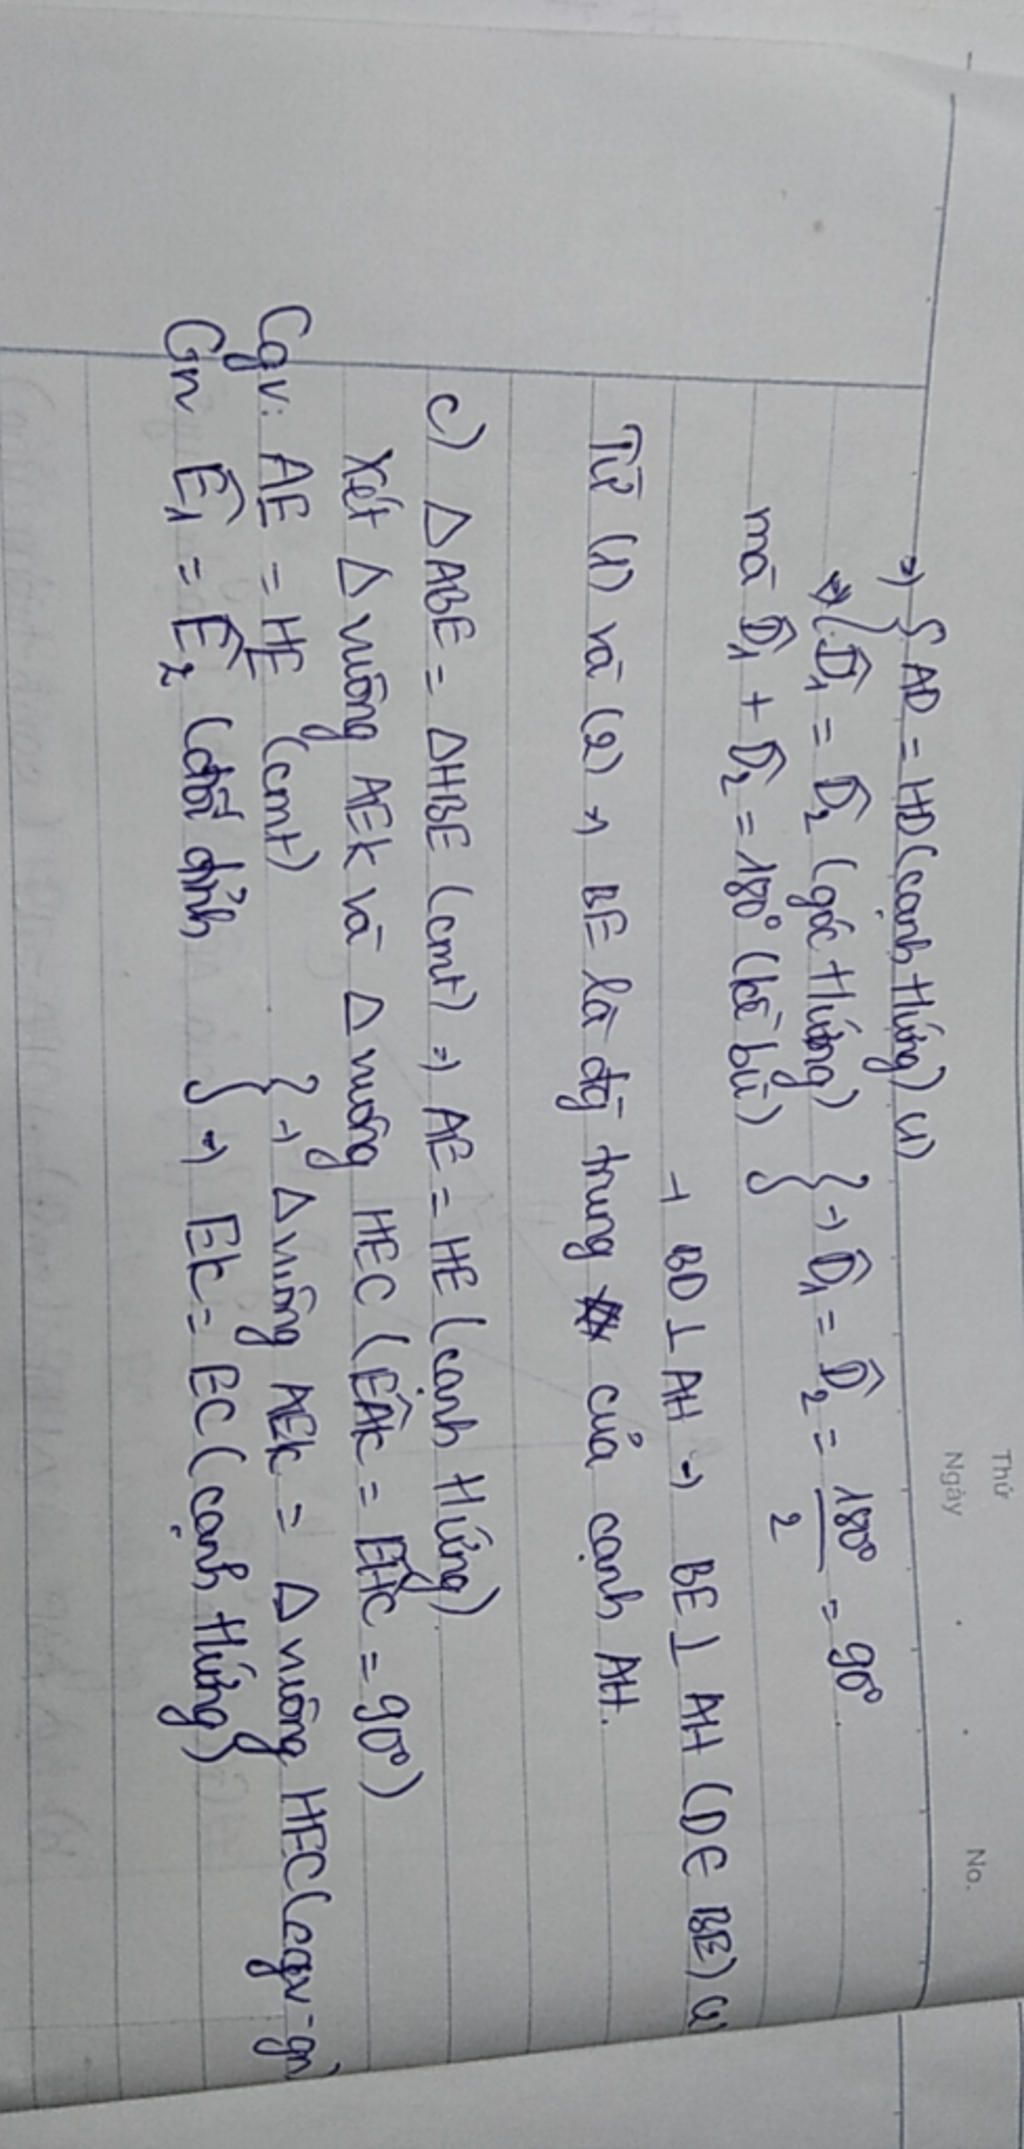 Thứ
Ngày
No.
=> { AD = HD (cạnh tứng) (1)
D̂₁ = D̂₂ (góc tứng)
mà D̂₁ + D̂₂ = 180° (kề bù) } → D̂₁ = D̂₂ = 180°/2 = 90°.
→ BD ⊥ AH => BE ⊥ AH (D ∈ BE)
Từ (1) và (2) → BE là đg trung của cạnh AH.
c) Δ ABE = Δ HBE (cmt) => AE = HE (cạnh tứng).
Xét Δ vuông AEK và Δ vuông HEC (EÂK = EĤC = 90°)
Cgv: AE = HE (cmt) } → Δ vuông AEK = Δ vuông HEC (cgv - gn)
Gn Ê₁ = Ê₂ (đối đỉnh } => EK = EC (cạnh tứng)